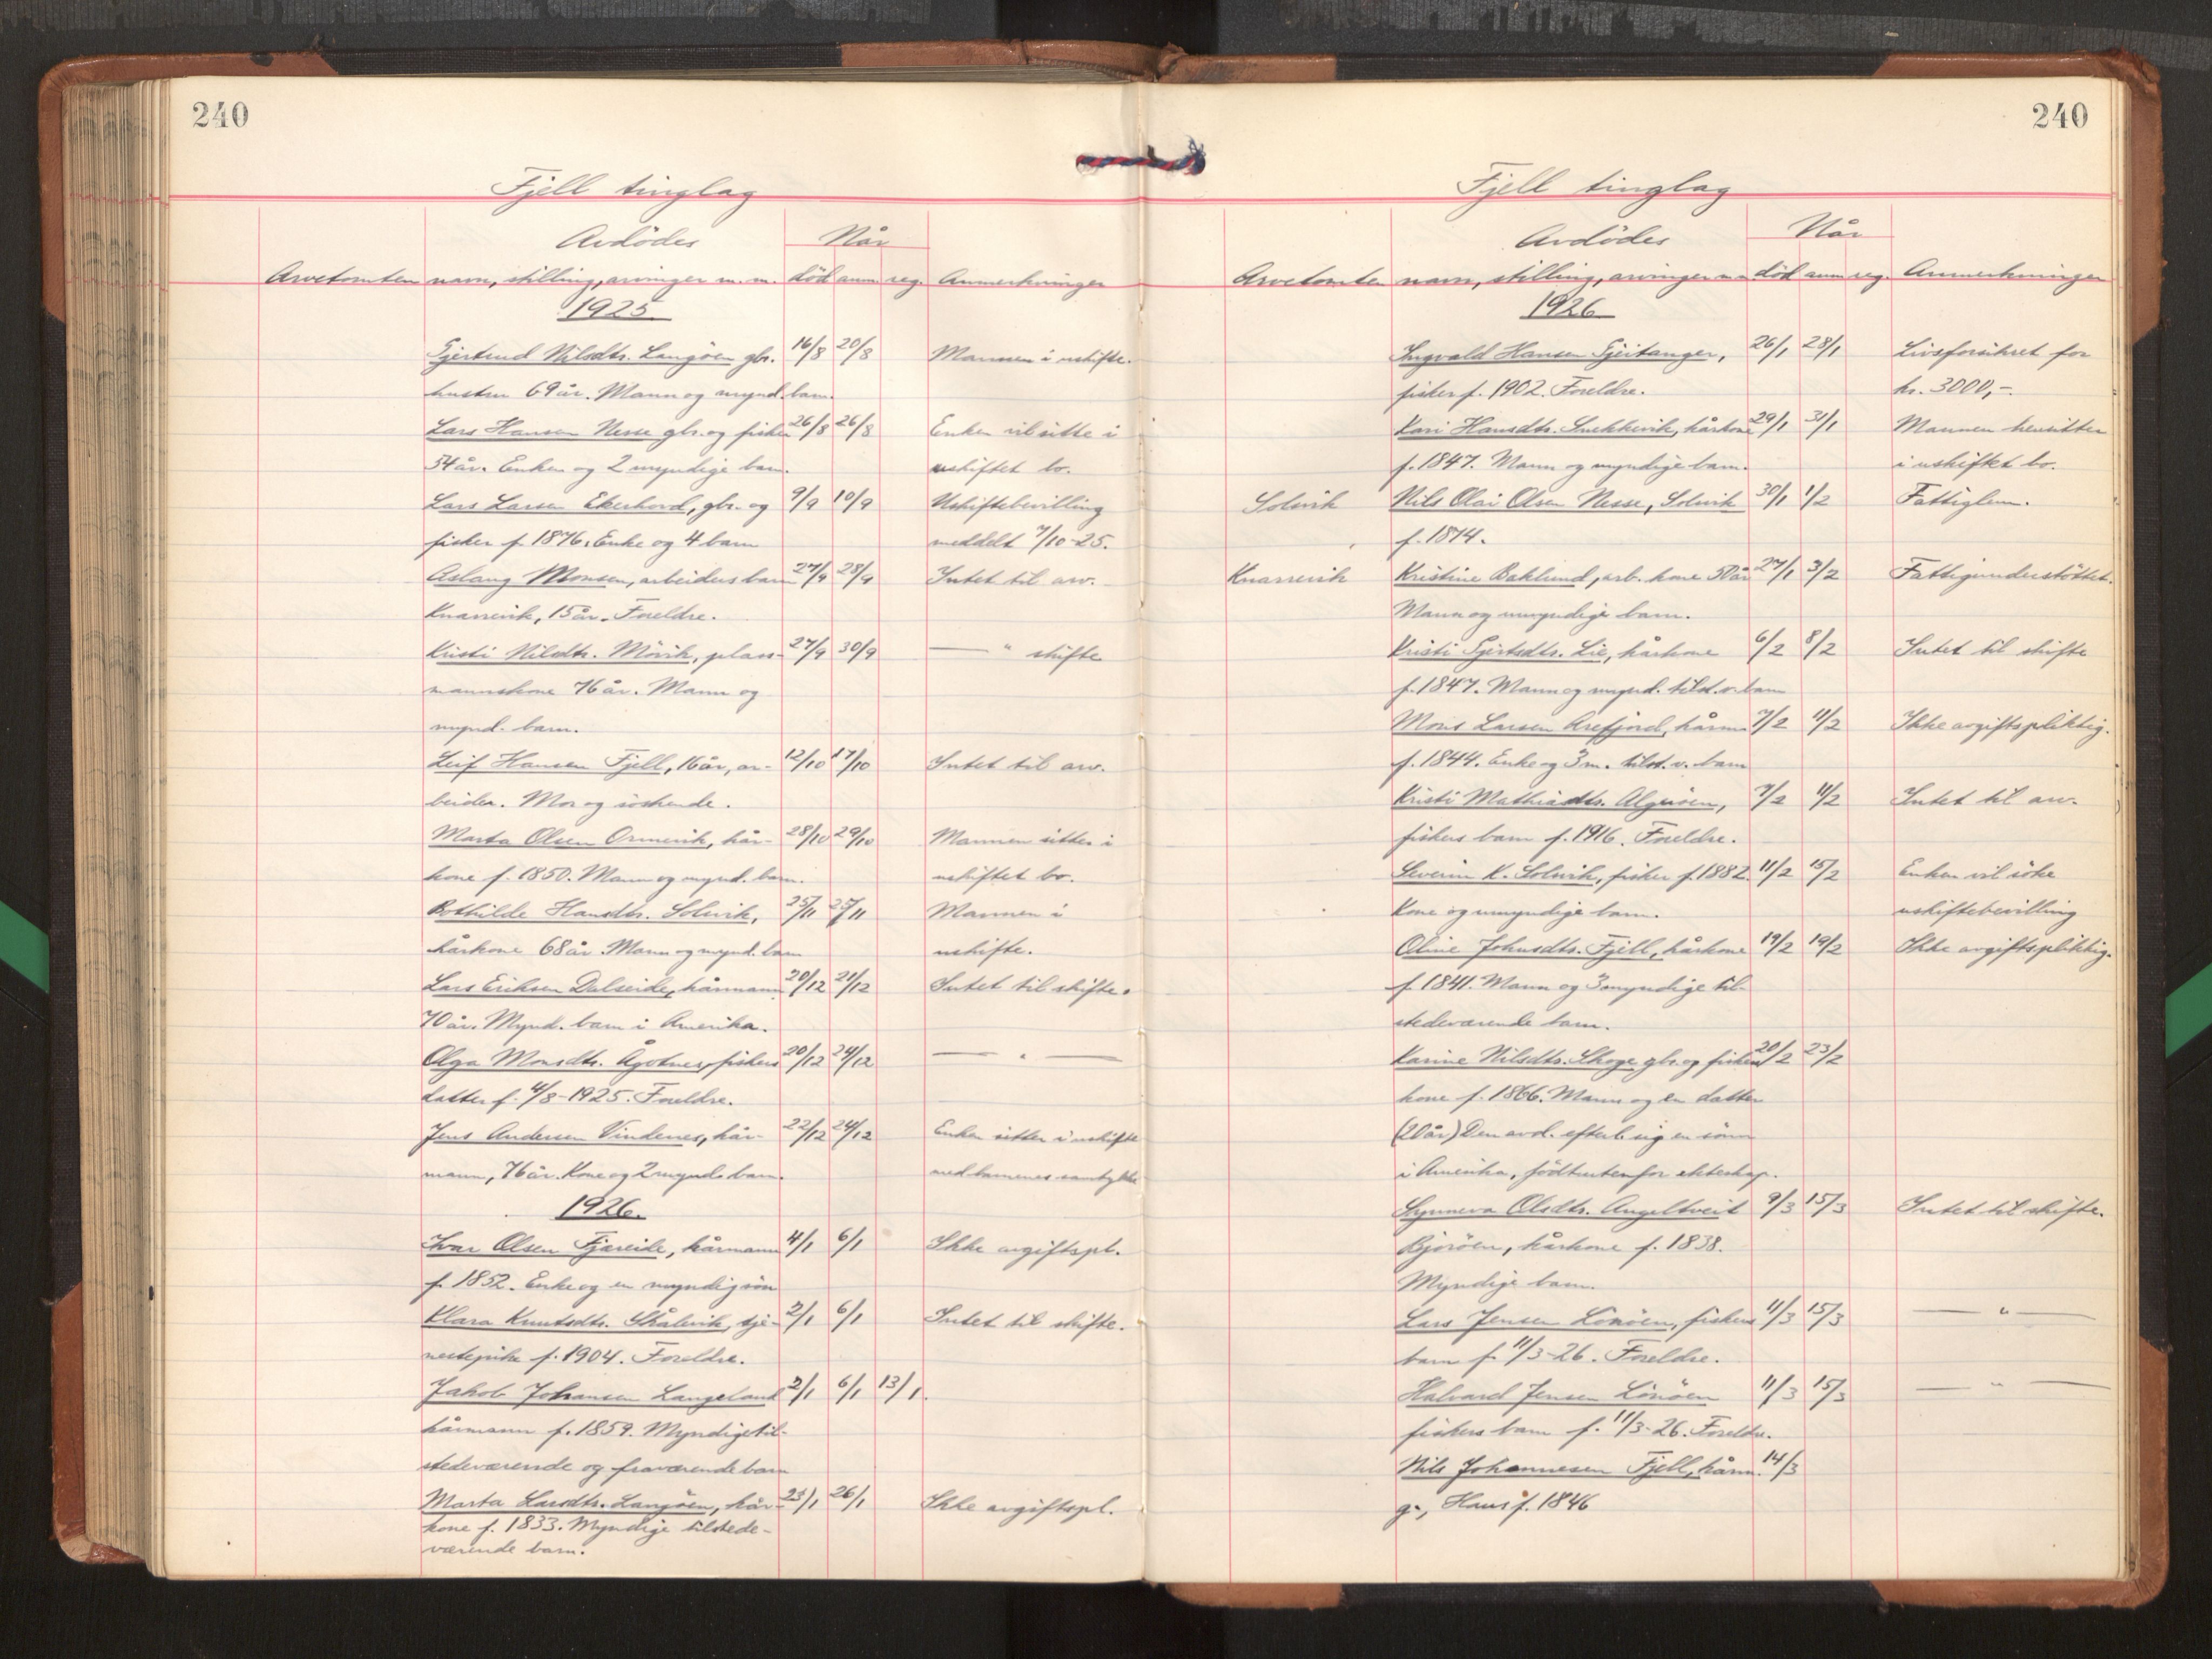 240
Fjell tinglag
Avdødes
Når
Arvetomten navn, stilling, arvinger m.m. død anm. reg. Anmerkninger
1925
Gjertrud Nilsdtr. Langöen gbr. 16/8 20/8 Mannen i uskifte.
hustru 69 år. Mann og mynd. barn.
Lars Hansen Nesse gbr. og fisker 26/8 26/8 Enken vil sitte i
54 år. Enken og 2 myndige barn. uskiftet bo.
Lars Larsen Ekerhovd, gbr. og 9/9 10/9 Uskiftebevilling
fisker f. 1876. Enke og 4 barn meddelt 7/10-25.
Aslaug Monsen, arbeiders barn 27/9 28/9 Intet til arv.
Knarrevik, 15 år. Foreldre.
Kristi Nilsdtr. Mövik, plass- 27/9 30/9 — " skifte
mannskone 76 år. Mann og
mynd. barn.
Leif Hansen Fjell, 16 år, ar- 12/10 17/10 Intet til arv.
beider. Mor og söskende.
Marta Olsen Ormevik, kår- 28/10 29/10 Mannen sitter i
kone f. 1850. Mann og mynd. barn. uskiftet bo.
Bothilde Hansdtr. Solvik, 25/11 25/11 Mannen i
kårkone 68 år. Mann og mynd. barn uskifte.
Lars Eriksen Dalseide, kårmann 20/12 21/12 Intet til skifte.
70 år. Mynd. barn i Amerika.
Olga Monsdtr. Ågotnes, fiskers 20/12 24/12 — " —
datter f. 4/8-1925. Foreldre.
Jens Andersen Vindenes, kår- 22/12 24/12 Enken sitter i uskifte
mann, 76 år. Kone og 2 mynd. barn. med barnenes samtykke
1926.
Ivar Olsen Fjæreide, kårmann 4/1 6/1 Ikke avgiftspl.
f. 1852. Enke og en myndig sön
Klara Knutsdtr. Skålevik, tje- 2/1 6/1 Intet til skifte.
nestepike f. 1904. Foreldre.
Jakob Johansen Langeland 2/1 6/1 13/1.
kårmann f. 1859. Myndige til-
stedeværende og fraværende barn
Marta Larsdtr. Langöen, kår- 23/1 26/1 Ikke avgiftspl.
kone f. 1833. Myndige tilstede-
værende barn.
240
Fjell tinglag
Avdødes
Når
Arvetomten navn, stilling, arvinger m.m. død anm. reg. Anmerkninger
1926
Ingvald Hansen Geitanger, 26/1 28/1 Livsforsikret for
fisker f. 1902. Foreldre. kr. 3000,-
Kari Hansdtr. Snekkevik, kårkone 29/1 31/1 Mannen hensitter
f. 1847. Mann og myndige barn. i uskiftet bo.
Solvik Nils Olai Olsen Nesse, Solvik 30/1 1/2 Fattiglem.
f. 1874.
Knarrevik Kristine Baklund, arb. kone 50 år 27/1 3/2 Fattigunderstöttet.
Mann og umyndige barn.
Kristi Gjertsdtr. Lie, kårkone 6/2 8/2 Intet til skifte
f. 1847. Mann og mynd. tilst.v. barn
Mons Larsen Arefjord, kårm. 7/2 11/2 Ikke avgiftspliktig.
f. 1844. Enke og 3 m. tilst.v. barn
Kristi Mathiasdtr. Algröen, 7/2 11/2 Intet til arv.
fiskers barn f. 1916. Foreldre.
Severin K. Solvik, fisker f. 1882. 11/2 15/2 Enken vil söke
Kone og umyndige barn. uskiftebevilling
Oline Johnsdtr. Fjell, kårkone 19/2 19/2 Ikke avgiftspliktig.
f. 1841. Mann og 3 myndige til-
stedeværende barn.
Karine Nilsdtr. Skoge gbr. og fiskers 20/2 23/2
kone f. 1866. Mann og en datter
(20 år) Den avd. efterl. sig en sönn
i Amerika, född utenfor ekteskap.
Synneva Olsdtr. Angeltveit 9/3 15/3 Intet til skifte.
Bjoröen, kårkone f. 1838.
Myndige barn.
Lars Jensen Lönöen, fiskers 11/3 15/3 — " —
barn f. 11/3-26. Foreldre.
Halvard Jensen Lönöen 11/3 15/3 — " —
fiskers barn f. 11/3-26. Foreldre.
Nils Johannesen Fjell, kårm. 14/3
g., Haus f. 1846